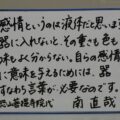 感情というのは液体だと思います
器に入れないと、その重さも色も
味もよく分からない。自らの感情
に意味を与えるためには、器
すなわち言葉が必要なのです。
南直哉